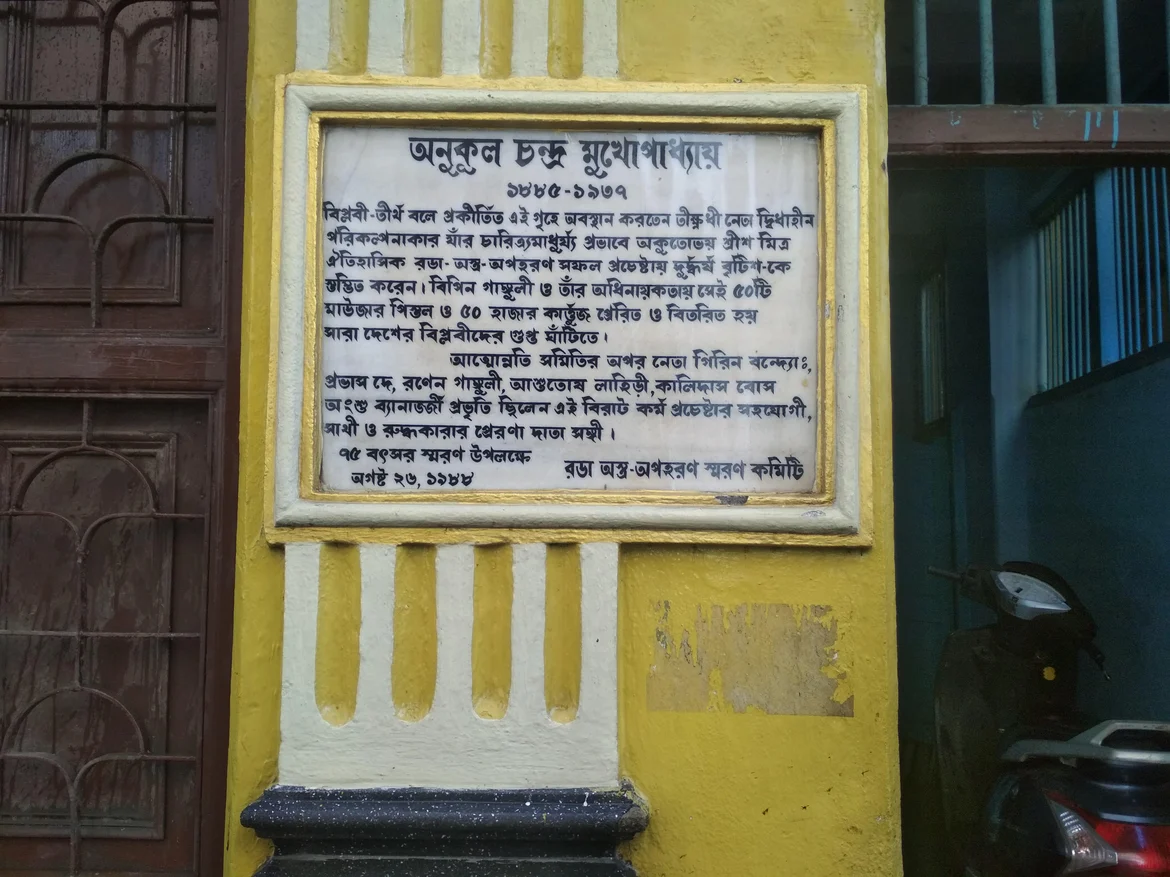 অনুকূল চন্দ্র মুখোপাধ্যায়
১৮৮৫-১৯৩৭
বিপ্লবী-তীর্থ বলে প্রকীর্তিত এই গৃহে অবস্থান করতেন তীক্ষ্ণধী নেতা দ্বিধাহীন
পরিকল্পনাকার যাঁর চারিত্র্যমাধুর্য্য প্রভাবে অকুতোভয় শ্রীশ মিত্র
ঐতিহাসিক রডা-অস্ত্র-অপহরণ সফল প্রচেষ্টায় দুর্দ্ধর্ষ বৃটিশ-কে
স্তম্ভিত করেন। বিপিন গাঙ্গুলী ও তাঁর অধিনায়কতায় সেই ৫০টি
মাউজার পিস্তল ও ৫০ হাজার কার্তুজ প্রেরিত ও বিতরিত হয়
সারা দেশের বিপ্লবীদের গুপ্ত ঘাঁটিতে।
আত্মোন্নতি সমিতির অপর নেতা গিরিন বন্দ্যোঃ,
প্রভাস দে, রণেন গাঙ্গুলী, আশুতোষ লাহিড়ী, কালিদাস বোস
অংশু ব্যানার্জ্জী প্রভৃতি ছিলেন এই বিরাট কর্ম প্রচেষ্টার সহযোগী,
সাথী ও রুদ্ধকারার প্রেরণা দাতা সঙ্গী।
৭৫ বৎসর স্মরণ উপলক্ষে
রডা অস্ত্র-অপহরণ স্মরণ কমিটি
অগষ্ট ২৬, ১৯৮৮